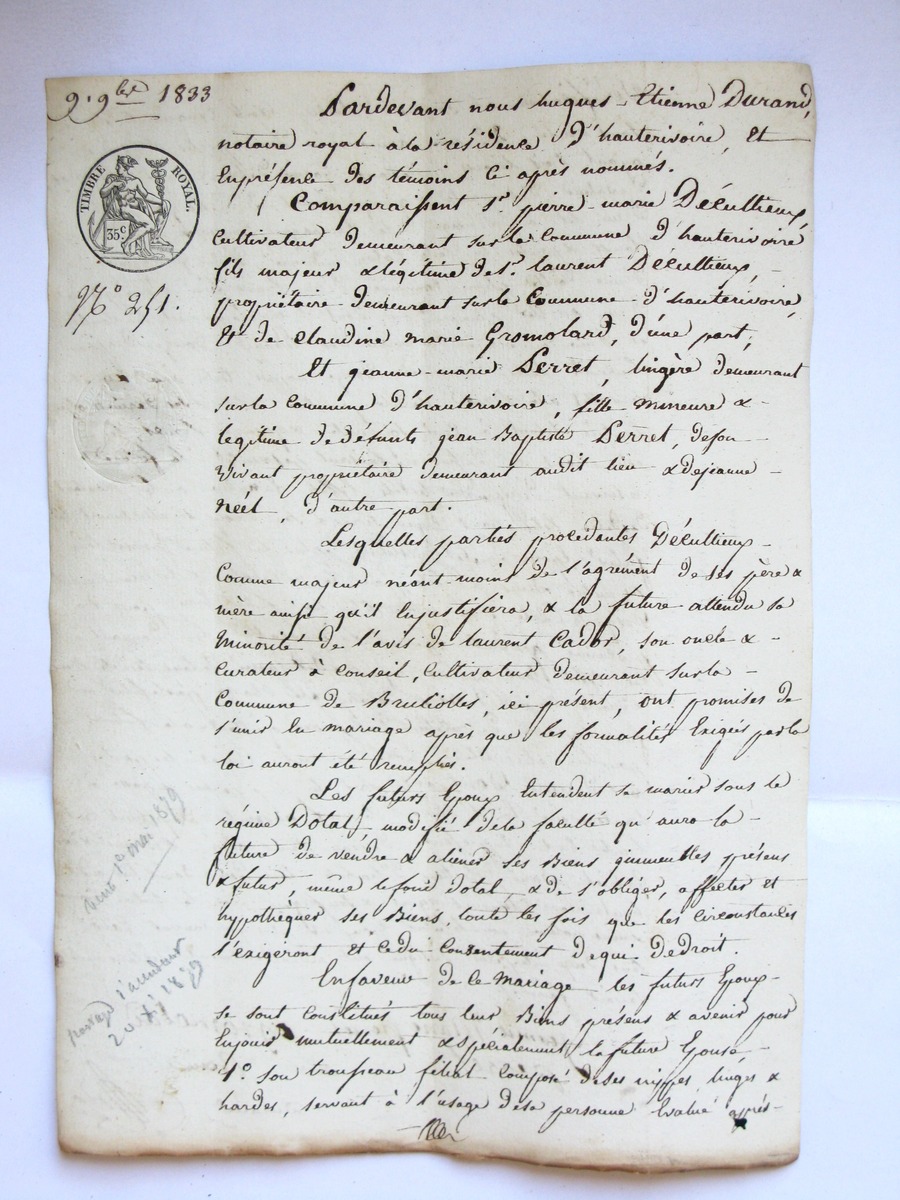 9. 9bre 1833
TIMBRE ROYAL.
35c
N° 251.
Pardevant nous hugues-Etienne Durand,
notaire royal à la résidence d'hauterivoire, Et
Enpresence des témoins Ci après nommés.
Comparaissent Sr. pierre-marie Décultieux
Cultivateur demeurant sur la Commune d'hauterivoire
fils majeur & légitime de Sr. laurent Décultieux,
propriétaire demeurant sur la Commune d'hauterivoire,
Et de Claudine marie Gromolard, d'une part;
Et jeanne-marie Perret, lingère demeurant
sur la Commune d'hauterivoire, fille mineure &
legitime de défunts jean Baptiste Perret, deson
vivant propriétaire demeurant audit lieu & dejeanne
Néel, d'autre part.
Lesquelles parties procédantes Décultieux
Comme majeur néant-moins de l'agrément de ses père &
mère ainsi qu'il Enjustifiera, & la future attendu sa
minorité de l'avis de laurent Cador, son oncle &
Curateur à Conseil, Cultivateur demeurant sur la
Commune de Brulioles, ici présent, ont promises de
s'unir En mariage après que les formalités Exigées par la
loi auront été remplies.
Les futurs Epoux Entendent se marier sous le
régime Dotal, modifié dela faculté qu'aura la
future de vendre & aliéner ses Biens immeubles présens
& futur, même le fond dotal, & de s'obliger, affecter et
hypothéquer ses Biens toute les fois que les circonstances
l'exigeront et cedu Consentement dequi dedroit.
Enfaveur de ce mariage les futurs Epoux
se sont Constitués tous leur Biens présens & avenir pour
Enjouir mutuellement & spécialement la future Epouse
1° son trousseau filial Composé deses nippes, linges &
hardes, servant à l'usage desa personne Evalué après
1er mai 1879
partage
20